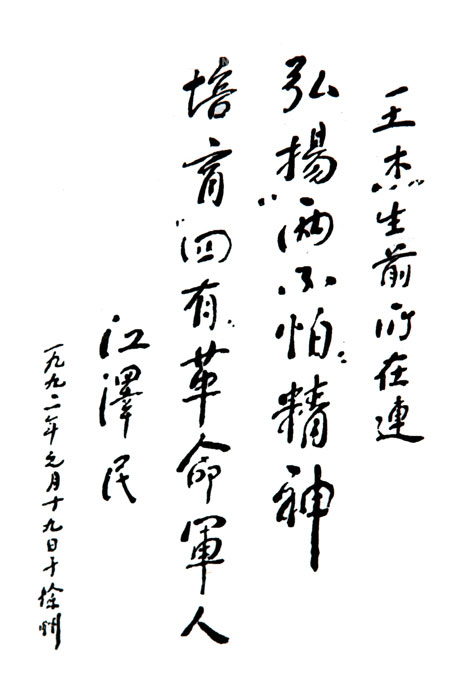 王杰生前所在連
弘揚“两不怕”精神
培育“四有”革命軍人
江澤民
一九九二年元月十九日于徐州